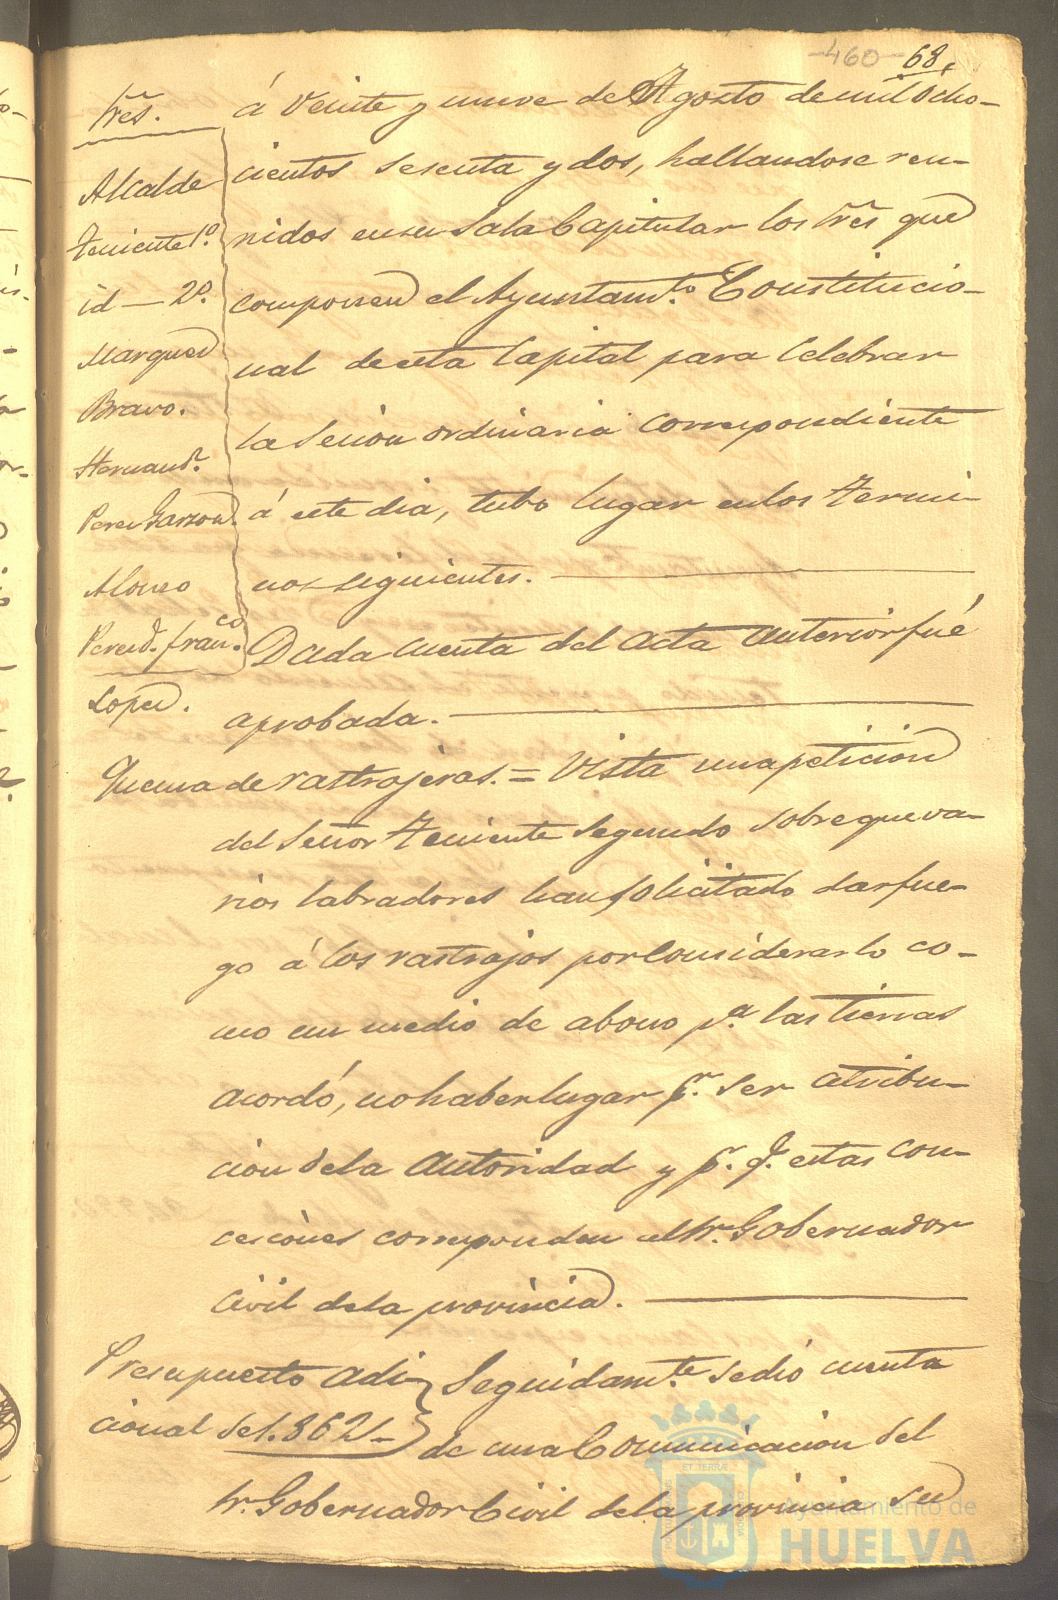 -460- 68,
Sres.
Alcalde
Teniente 1º.
id - 2º.
Marquez
Bravo.
Hernandz.
Perez Garzon.
Alonso
Perez d. franco.
Lopez.
á veinte y nueve de Agosto de mil ocho-
cientos sesenta y dos, hallandose reu-
nidos en su Sala Capitular los Sres que
componen el Ayuntamto. Constitucio-
nal de esta Capital para Celebrar
la Sesion ordinaria correspondiente
á este dia, tubo lugar en los termi-
nos siguientes.
Dada cuenta del acta anterior fué
aprobada.
Quema de rastrojeras. = Vista una peticion
del Señor Teniente Segundo sobre que va-
rios labradores han solicitado dar fue-
go á los rastrojos por Considerarlo co-
mo un medio de abono pa. las tierras
acordó, no haber lugar pr. ser atribu-
cion de la Autoridad y pr. q. estas con-
cesiones corresponden al Sr. Gobernador
Civil de la provincia.
Presupuesto adi
cional de 1.862-
Seguidamte. se dió cuenta
de una Comunicacion del
Sr. Gobernador Civil de la provincia su
Ayuntamiento de
HUELVA